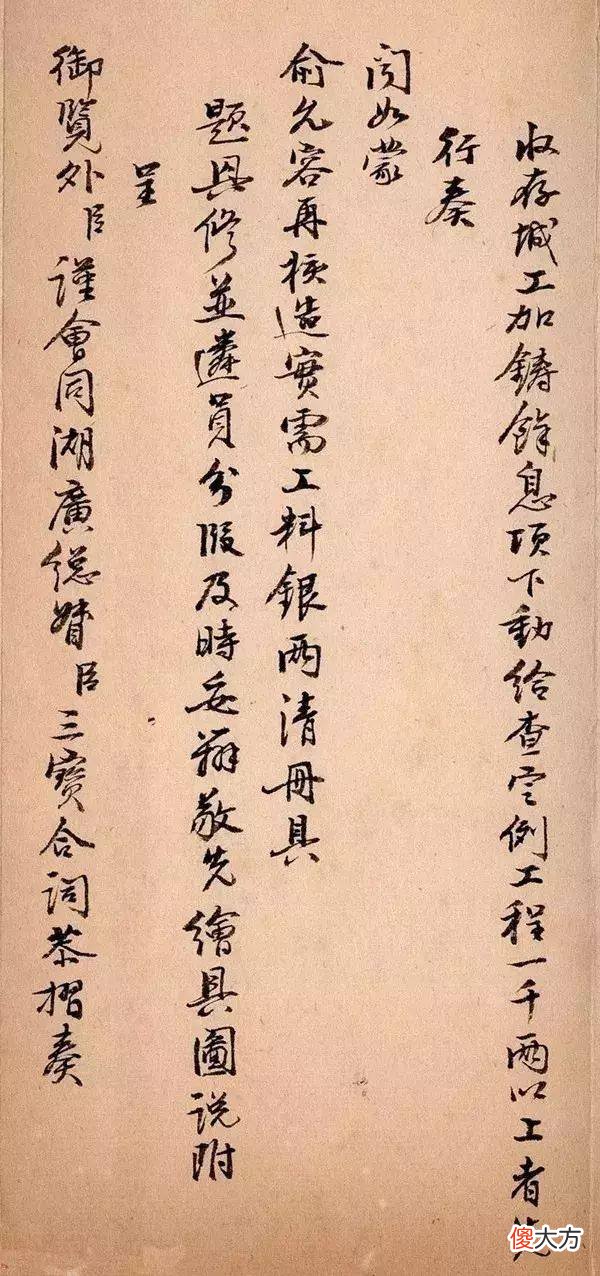 收存城工加鑄餘息項下動給查定例工程一千兩以上者先
行奏
聞如蒙
俞允容再核造實需工料銀兩清冊具
題興修並遴員分段及時妥辦敬先繪具圖說附
呈
御覽外臣謹會同湖廣總督臣三寶合詞恭摺奏
傻大方